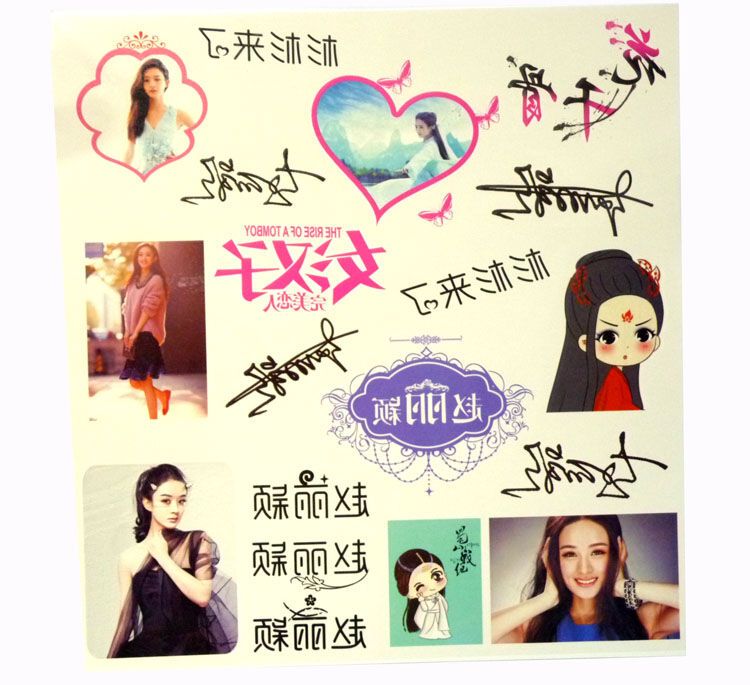 杉杉来了
花千骨
THE RISE OF A TOMBOY
女汉子
完美恋人
杉杉来了
赵丽颖
赵丽颖
赵丽颖
赵丽颖
蜀山战纪